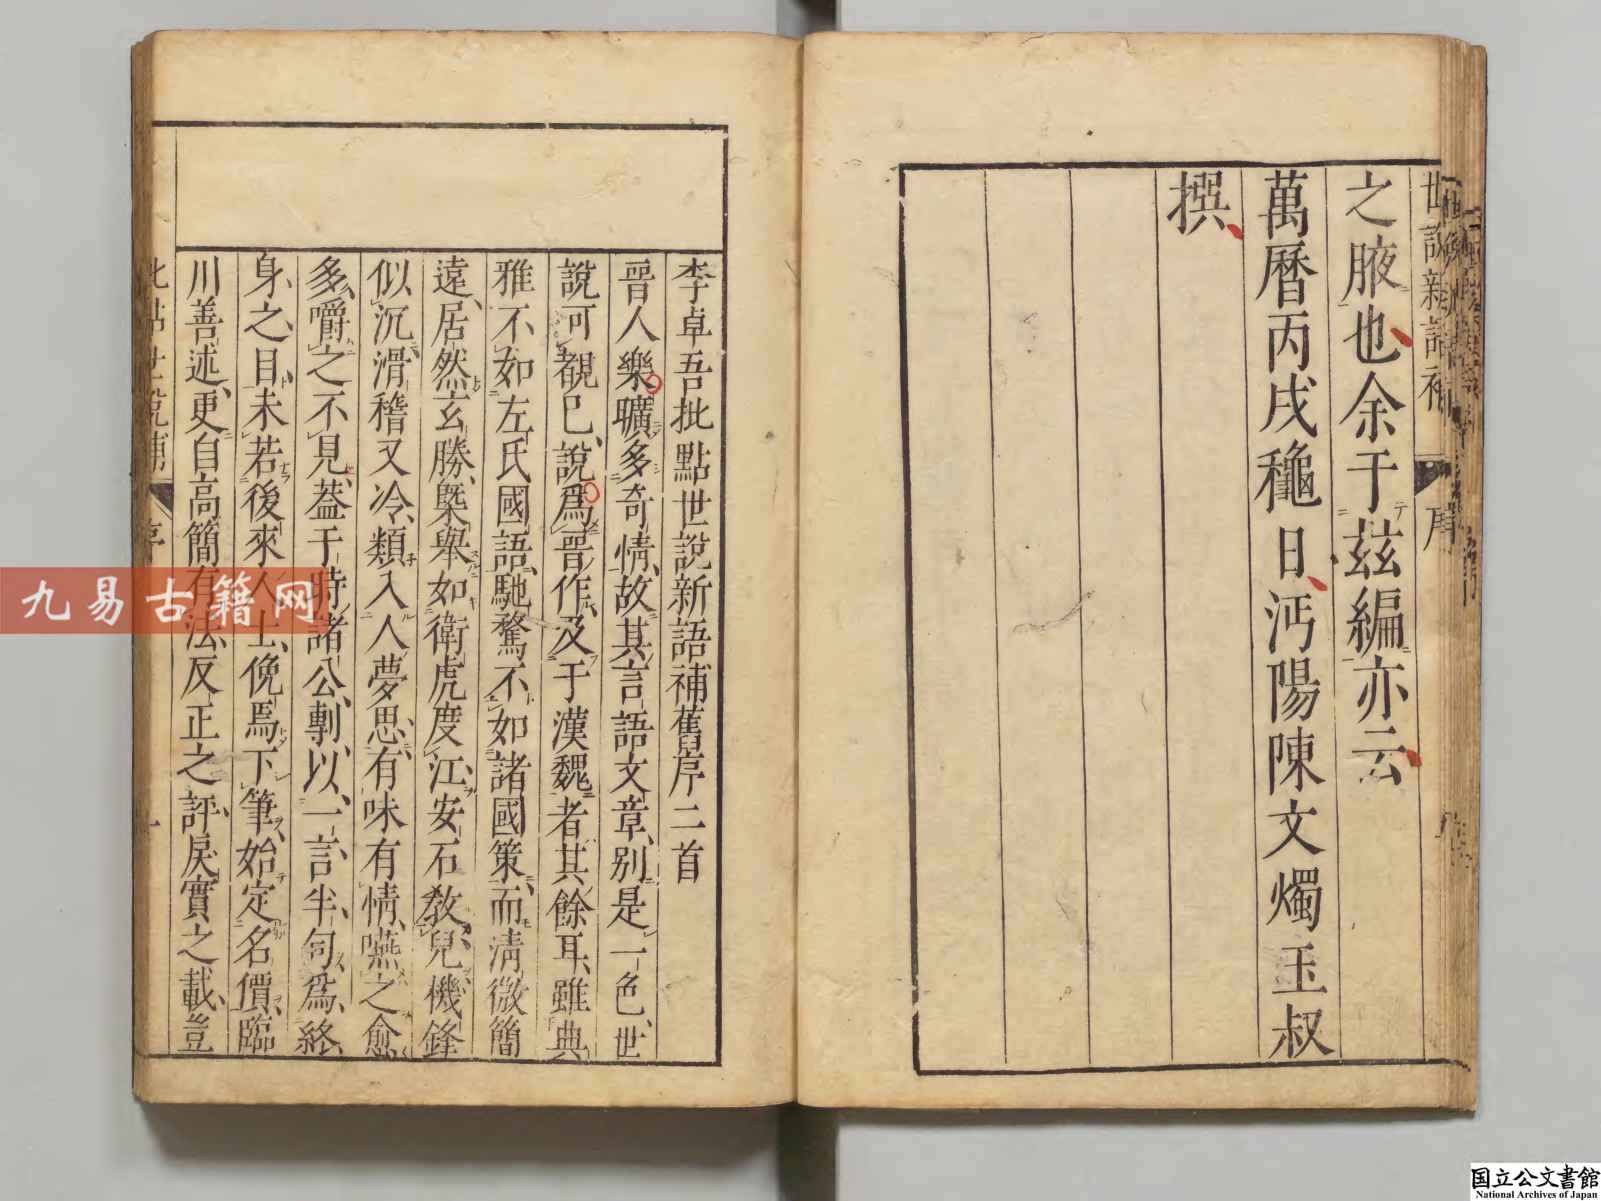 世說新語補 序
之腋也余于玆編亦云
萬曆丙戌龝日沔陽陳文燭玉叔
撰
李卓吾批點世說新語補舊序二首
晉人樂曠多奇情故其言語文章别是一色世
說可覩已說爲晉作及于漢魏者其餘耳雖典
雅不如左氏國語馳騖不如諸國策而淸微簡
遠居然玄勝槩舉如衛虎度江安石敎兒機鋒
似沉滑稽又冷類入人夢思有味有情嚥之愈
多嚼之不見葢于時諸公剸以一言半句爲終
身之目未若後來人士俛焉下筆始定名價臨
川善述更自高簡有法反正之評戾實之載豈
批點世說補 序 一
九易古籍网
国立公文書館
National Archives of Japan